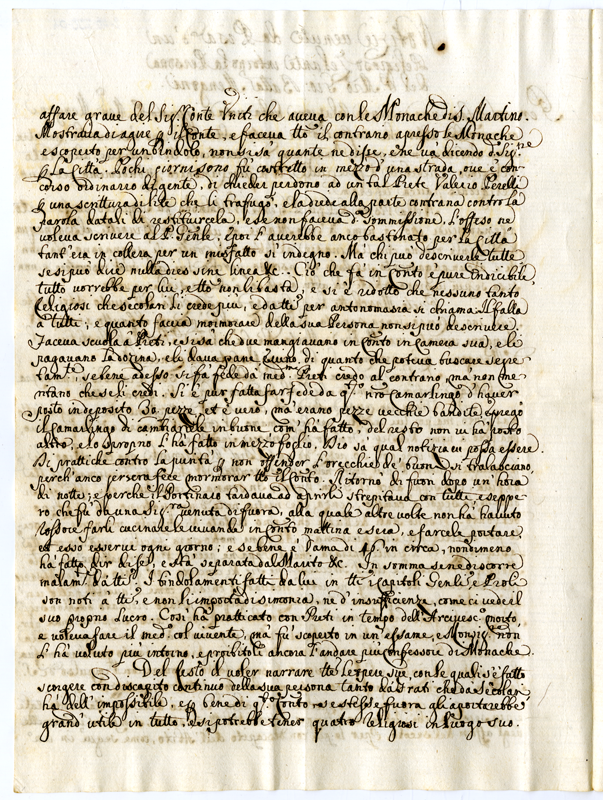 affare grave del Sig.r Conte Vnti che aueua con le Monache di S. Martino.
Mostraua di agire p il Conte, e faceua tto il contrario apresso le Monache
e scoperto per un bindolo, non si sà quante ne disse, e ne uà dicendo d.o Sig.re
p la Città. Pochi giorni sono fù costretto in mezzo d'una strada, oue è con-
corso ordinario di gente, di chieder perdono ad un tal Prete Valerio Perelli
p una scrittura di lite che li trafugò, e la diede alla parte contraria contro la
parola datali di restituircela, e se non faceua d.a sommissione, l'offeso ne
voleua scrivere al P. Gen.le. E poi l'auerebbe anco bastonato per la Città
tant'era in collera per un misfatto si indegno. Ma chi può descriuerle tutte
se si può dire nulla dies sine linea &c. Ciò che fà in Conto è pure indicibile,
tutto vorrebbe per lui, e tto non li basta, e si è ridotto che nessuno tanto
Religiosi che secolari li crede piu, e da tti per antonomasia si chiama
à tutti, e quanto faccia mormorare della sua Persona non si può descriuere.
Faceua scuola à Preti, e si sà che due mangiauano in Conto in Camera sua, e le
pagauano la dozina, e le daua pane, e uino, di quanto che poteua buscare segre
tam.te, se bene adesso si fà fede da med.mi Preti credo al contrario, mà non
ritano che se li credi. Si è pur fatta far fede da q.o nro Camarlingo d'hauer
posto in deposito 30 pezze, et è vero, ma erano pezze vecchie bandite, e pregò
il Camarlingo di cambiarcele in buone com'hà fatto, del resto non vi hà posto
altro, e lo sproprio l'hà fatto in mezzo foglio. Dio sà qual notizia ui possa essere.
Di prattiche contro la purità p non offender l'orecchie de' buoni si tralasciano,
perch'anco iersera fece mormorar tto il Conto. Ritornò di fuori dopo un'hora
di notte; e perche il Portinaro tardaua ad aprirli strepitaua con tutti, e seppe-
ro che fù da una Sig.ra uenuta di fuora, alla quale altre volte non hà hauuto
rossore farli cucinale le uiuande in Conto mattina e sera, e farcele portare,
et esso esserui ogni giorno; e se bene è Dama di 45. in circa, nondimeno
hà fatto dir di se, e stà separata dal Marito &c. In somma se ne discorre
malam.te da tti. I bindolamenti fatti da lui in tti i Capitoli Gen.li, e Prou.li
son noti à tti, e non li importa di simonia, ne d'insufficienze, come ci uede il
suo proprio lucro. Così hà pratticato con Preti in tempo dell'Arciuesc.o morto,
e voleua fare il med.o col uiuente, ma fù scoperto in un'essame, e Monsig.re non
l'hà voluto piu intorno, e proibitoli ancora l'andare piu Confessore di Monache.
Del resto il voler narrare tte le opere sue, con le quali s'è fatto
scorgere con discapito continuo della sua persona tanto da frati che da secolari
hà dell'impossibile, e p bene di q.o Conto se stesse fuora gli aporterebbe
grand'utile in tutto, e si potrebbe tener quatro religiosi in luogo suo.